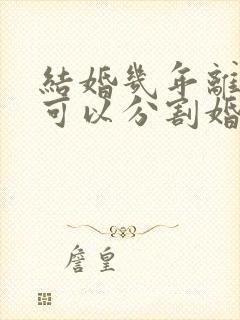 結婚幾年離
可以分割婚
詹皇